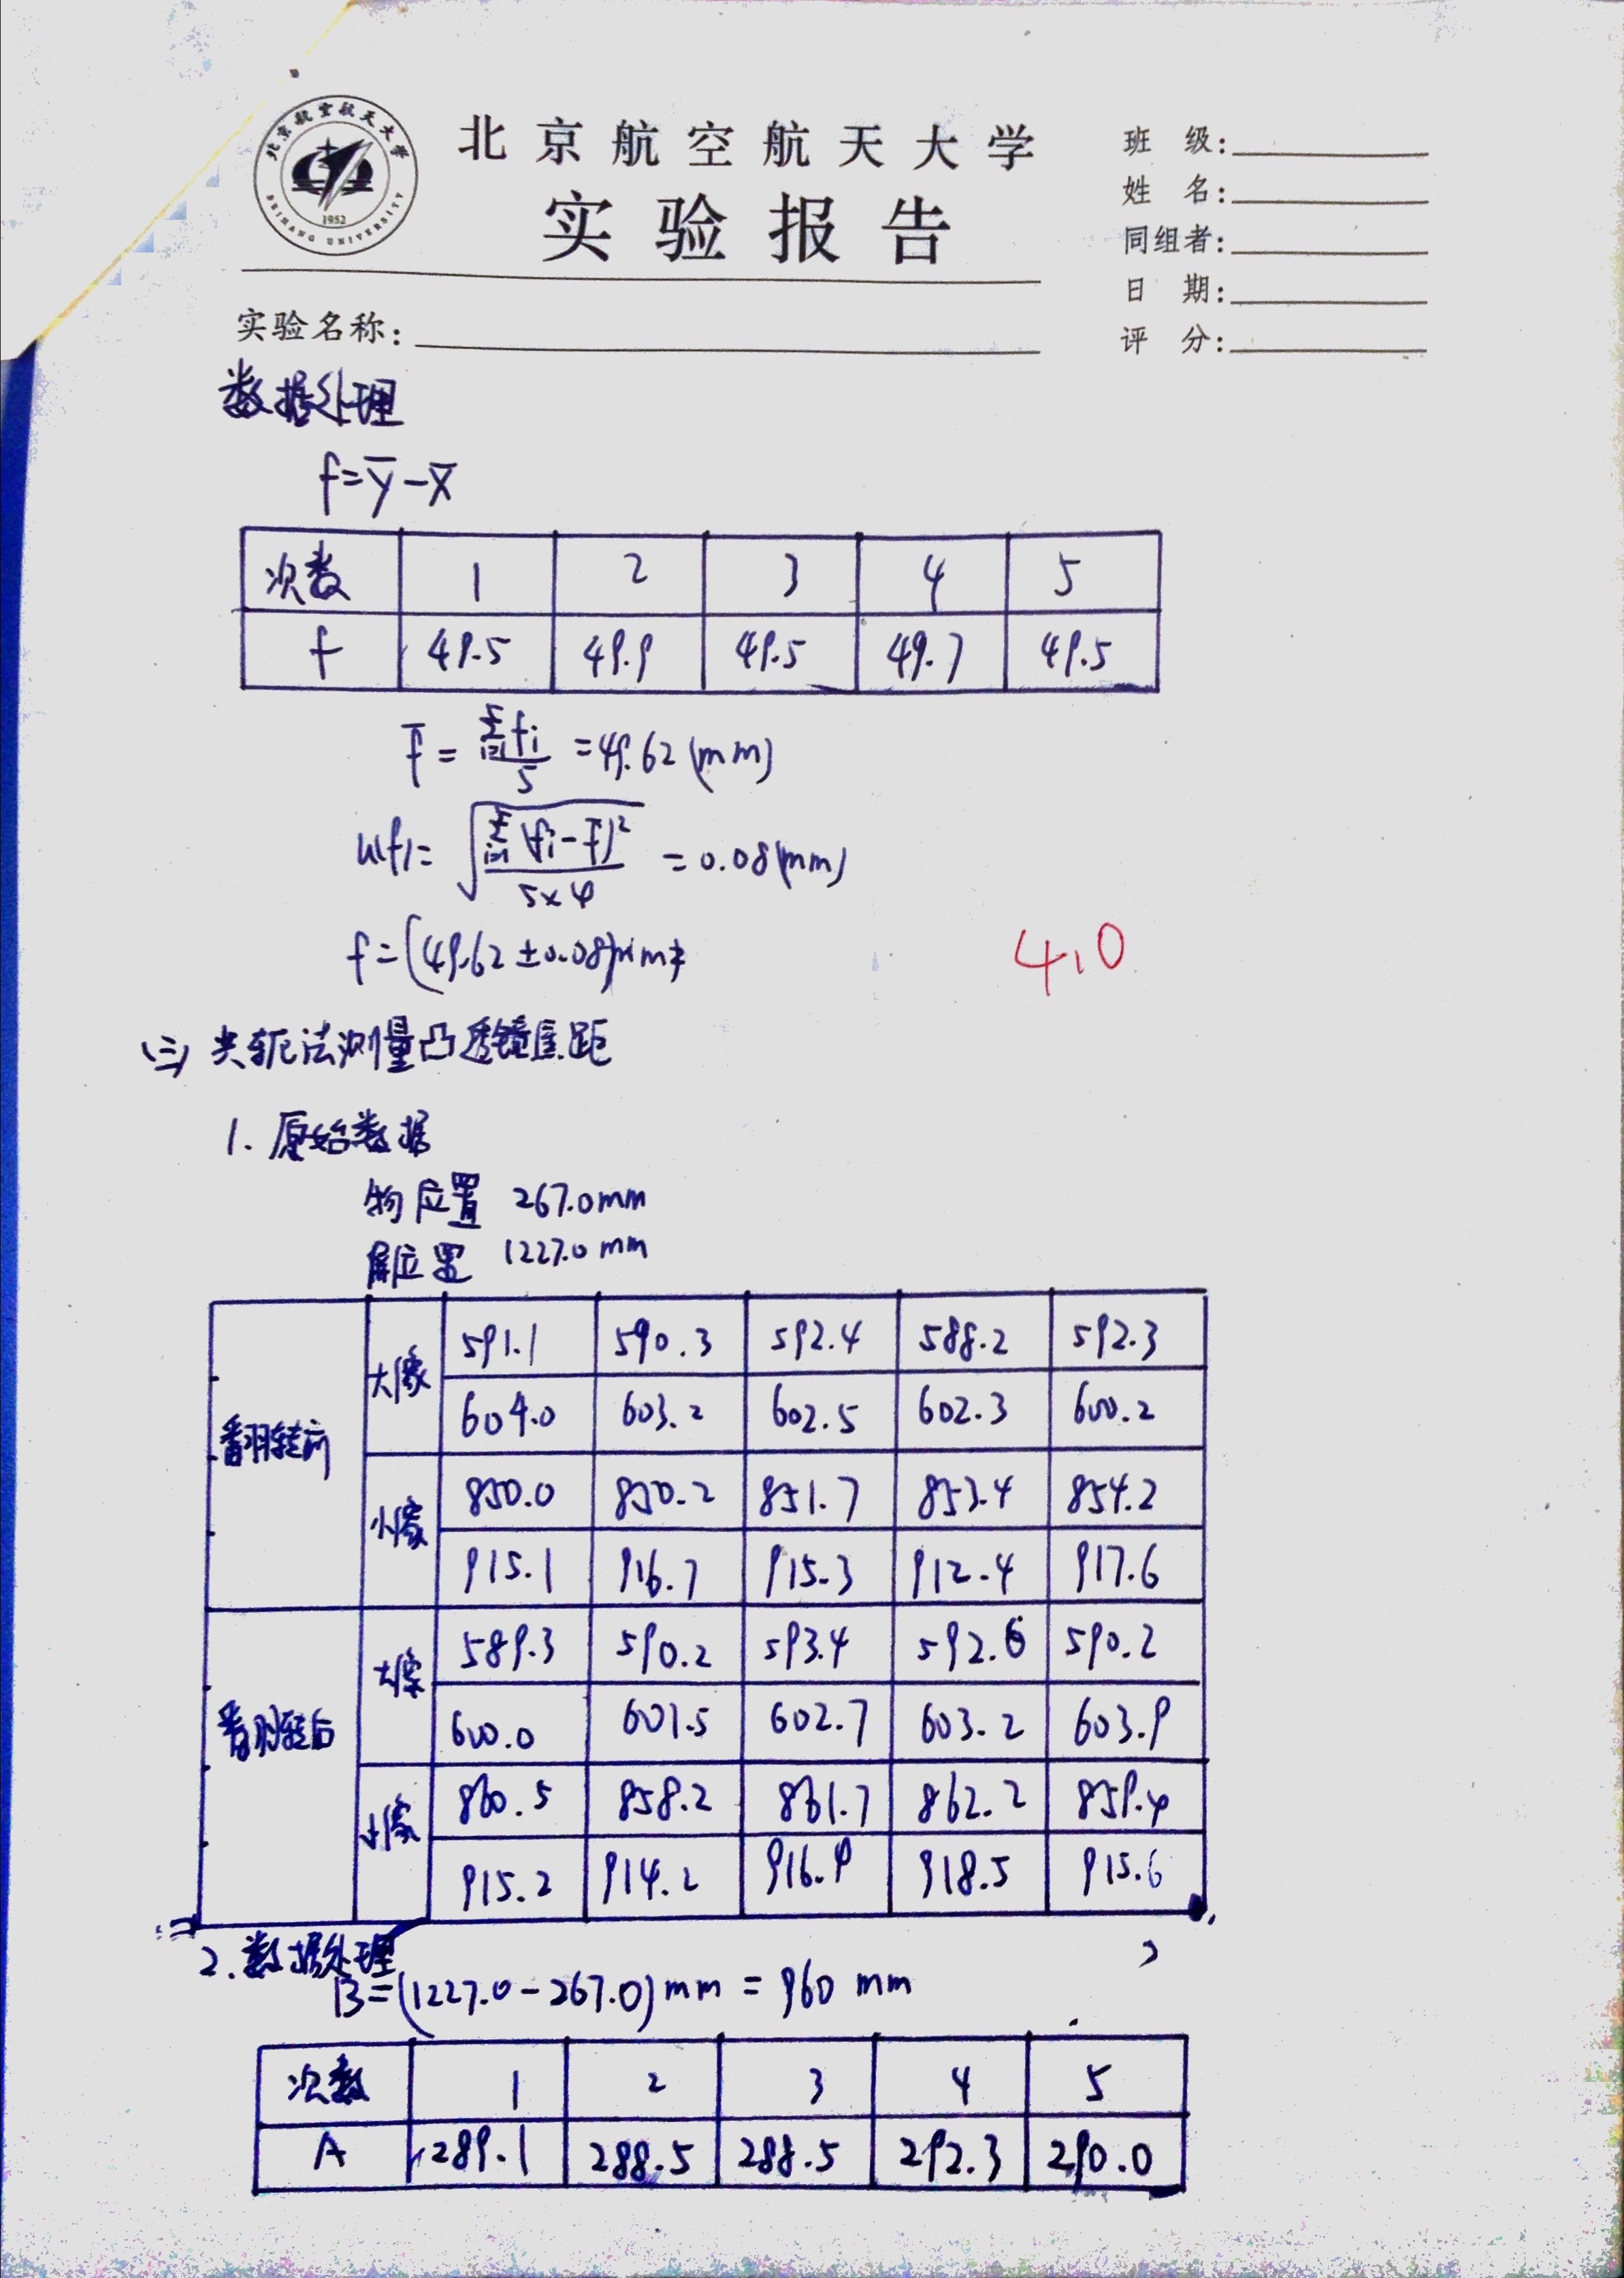 北京航空航天大学
BEIHANG UNIVERSITY
1952
北京航空航天大学
实验报告
班 级:
姓 名:
同组者:
日 期:
评 分:
实验名称:
数据处理
f=y̅-x̅
次数 1 2 3 4 5
f 49.5 49.9 49.5 49.7 49.5
f̅ = Σ(i=1→5) fi / 5 = 49.62 (mm)
u(f) = √(Σ(i=1→5) (fi-f̅)² / 5×4) = 0.08 (mm)
f=(49.62±0.08)mm
4.0
(三) 共轭法测量凸透镜焦距
1. 原始数据
物位置 267.0mm
屏位置 1227.0 mm
翻转前 大像 591.1 590.3 592.4 588.2 592.3
604.0 603.2 602.5 602.3 600.2
小像 850.0 850.2 851.7 853.4 854.2
915.1 916.7 915.3 912.4 917.6
翻转后 大像 589.3 590.2 593.4 592.6 590.2
600.0 601.5 602.7 603.2 603.9
小像 860.5 858.2 861.7 862.2 859.4
915.2 914.2 916.9 918.5 915.6
2. 数据处理
B=(1227.0-267.0)mm = 960 mm
次数 1 2 3 4 5
A 289.1 288.5 288.5 292.3 290.0